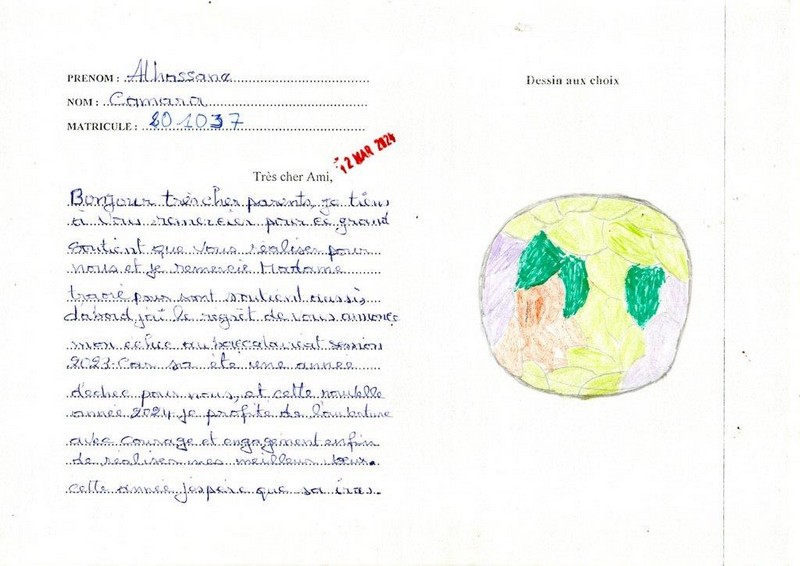 PRENOM : Alhassane
NOM : Camara
MATRICULE : 201037
Dessin aux choix
12 MAR 2024
Très cher Ami,
Bonjour très cher parents, je tiens
à vous remercier pour ce grand
soutient que vous réaliser pour
nous et je remercie Madame
pour sont soutient aussi
dabord j'ai le regret de vous annonce
mon echec au baccalauréat session
2023. Car sa été une année
d'echec pour nous, et cette nouvelle
année 2024 je profite de
avec courage et engagement enfin
de réaliser mes meilleur
cette année j'espère que sa iras.